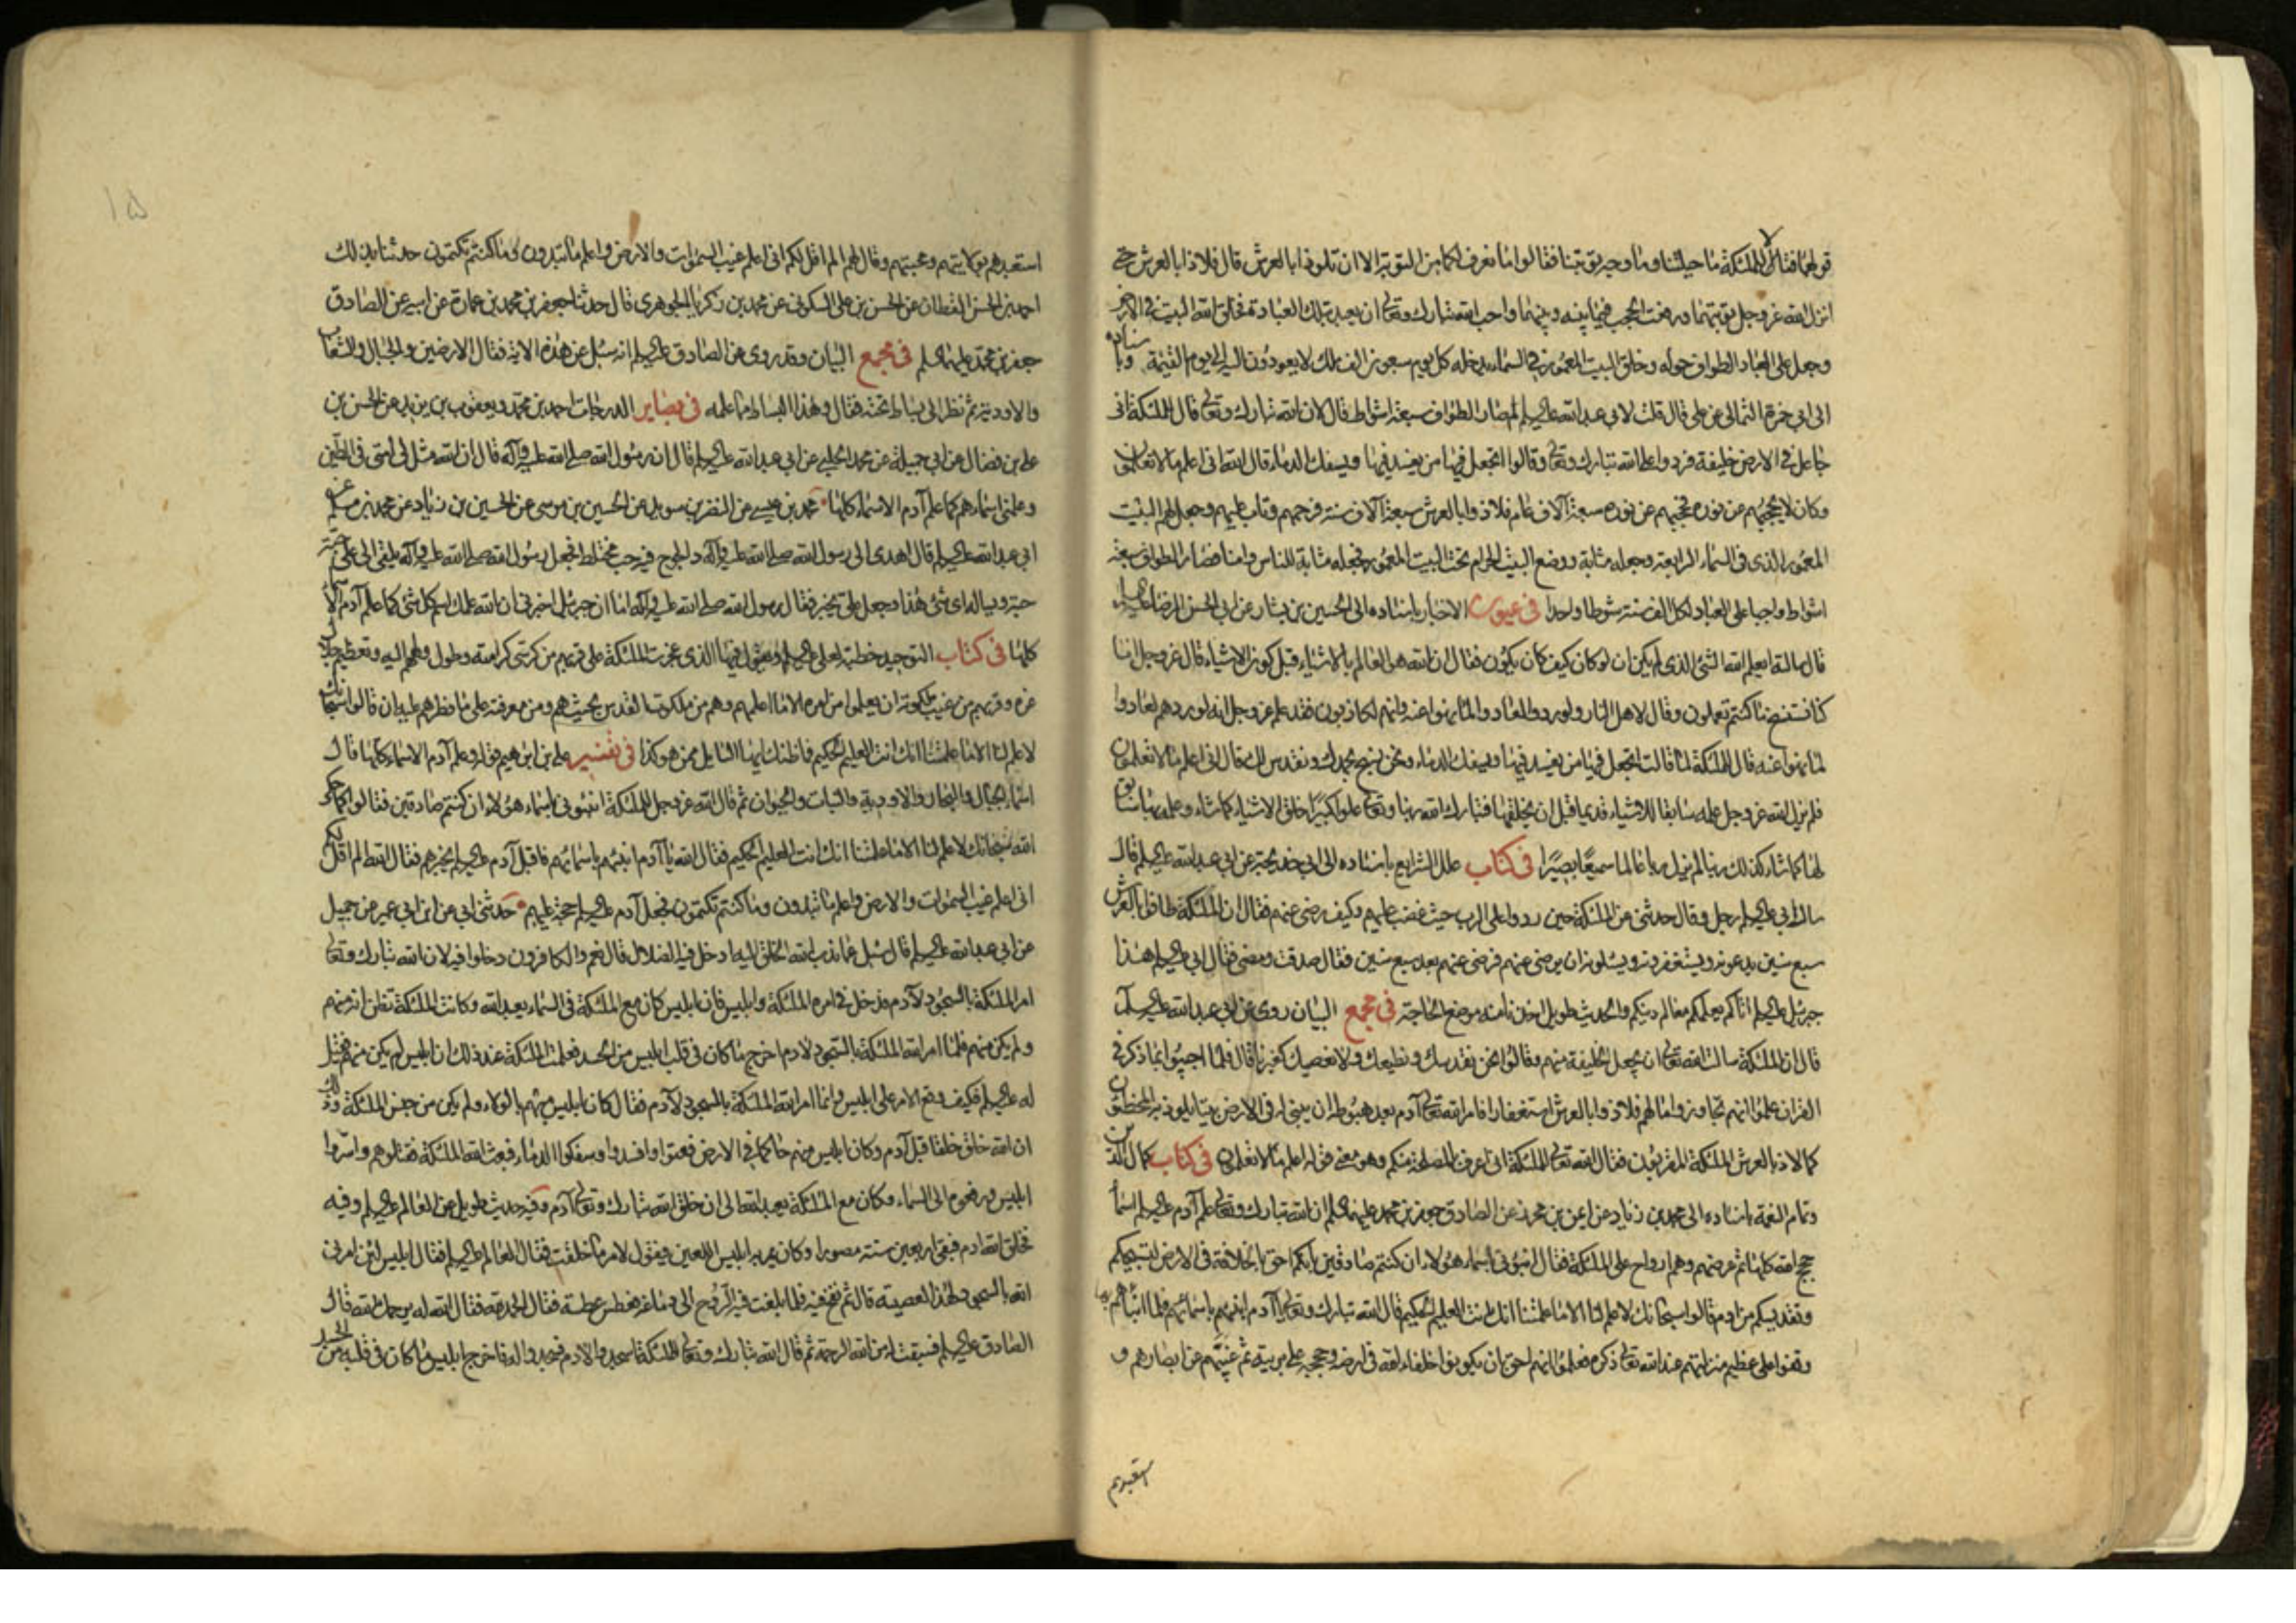 قولهما فقال الملئكة ما حيلتنا وما وجه توبتنا فقالوا ما نعرف لكما من التوبة الا ان تلوذا بالعرش قال فلاذا بالعرش حتى
انزل الله عز وجل توبتهما ورفعت الحجب فيما بينه وبينهما واحب الله تبارك وتعالى ان يعبد بتلك العبادة فخلق الله البيت في الارض
وجعل على العباد الطواف حوله وخلق البيت المعمور في السماء يدخله كل يوم سبعون الف ملك لا يعودون اليه الى يوم القيمة وباسناده
الى ابي حمزة الثمالي عن علي قال قلت لابي عبد الله عليه السلم لم صار الطواف سبعة اشواط قال لان الله تبارك وتعالى قال للملئكة اني
جاعل في الارض خليفة فردوا على الله تبارك وتعالى وقالوا اتجعل فيها من يفسد فيها ويسفك الدماء قال الله اني اعلم ما لا تعلمون
وكان لا يحجبهم عن نوره فحجبهم عن نوره سبعة آلاف عام فلاذوا بالعرش سبعة آلاف سنة فرحمهم وتاب عليهم وجعل لهم البيت
المعمور الذى فى السماء الرابعة وجعله مثابة ووضع البيت الحرام تحت البيت المعمور فجعله مثابة للناس وامنا فصار الطواف سبعة
اشواط واجبا على العباد لكل الف سنة شوطا واحدا فى عيون الاخبار باسناده الى الحسين بن بشار عن ابي الحسن الرضا عليه السلم
قال سالته ايعلم الله الشئ الذى لم يكن ان لو كان كيف كان يكون فقال ان الله هو العالم بالاشياء قبل كون الاشياء قال عز وجل انا
كنا نستنسخ ما كنتم تعملون وقال لاهل النار ولو ردوا لعادوا لما نهوا عنه وانهم لكاذبون فقد علم عز وجل انه لو ردهم لعادوا
لما نهوا عنه وقال للملئكة لما قالت اتجعل فيها من يفسد فيها ويسفك الدماء ونحن نسبح بحمدك ونقدس لك قال اني اعلم ما لا تعلمون
فلم يزل الله عز وجل علمه سابقا للاشياء قديما قبل ان يخلقها فتبارك الله ربنا وتعالى علوا كبيرًا خلق الاشياء كما شاء وعلمه بها سابق
لها كما شاء كذلك ربنا لم يزل ربنا عالما سميعًا بصيرًا فى كتاب علل الشرايع باسناده الى ابي خديجة عن ابي عبد الله عليه السلم قال
سال ابي عليه السلم رجل وقال حدثني عن الملئكة حين ردوا على الرب حيث غضب عليهم وكيف رضي عنهم فقال ان الملئكة طافوا بالعرش
سبع سنين يدعونه ويستغفرونه ويسئلونه ان يرضى عنهم فرضي عنهم بعد سبع سنين فقال صدقت ومضى فقال ابي عليه السلم هذا
جبرئيل عليه السلم اتاكم يعلمكم معالم دينكم والحديث طويل اخذنا منه موضع الحاجة فى مجمع البيان روى عن ابي عبد الله عليه السلم
قال ان الملئكة سالت الله تعالى ان يجعل الخليفة منهم وقالوا نحن نقدسك ونطيعك ولا نعصيك كغيرنا قال فلما اجيبوا بما ذكر فى
القران علموا انهم تجاوزوا ما لهم فلاذوا بالعرش استغفارا فامر الله تعالى آدم بعد هبوطه ان يبني له فى الارض بيتا يلوذ به المخطئون
كما لاذ بالعرش الملئكة المقربون فقال الله تعالى للملئكة اني اعرف بالمصلحة منكم وهو معنى قوله اعلم ما لا تعلمون فى كتاب كمال الدين
وتمام النعمة باسناده الى محمد بن زياد عن ايمن بن محرز عن الصادق جعفر بن محمد عليهما السلم ان الله تبارك وتعالى علم آدم عليه السلم اسماء
حجج الله كلها ثم عرضهم وهم ارواح على الملئكة فقال انبؤني باسماء هؤلاء ان كنتم صادقين بانكم احق بالخلافة فى الارض لتسبيحكم
وتقديسكم من ادم قالوا سبحانك لا علم لنا الا ما علمتنا انك انت العليم الحكيم قال الله تبارك وتعالى يا آدم انبئهم باسمائهم فلما انبأهم بها
وقفوا على عظيم منزلتهم عند الله تعالى ذكره فعلموا انهم احق بان يكونوا خلفاء الله فى ارضه وحججه على بريته ثم غيبهم عن ابصارهم و
استعبدهم
١٥
استعبدهم بولايتهم ومحبتهم وقال لهم الم اقل لكم انى اعلم غيب السموات والارض واعلم ما تبدون وما كنتم تكتمون حدثنا بذلك
احمد بن الحسن القطان عن الحسن بن على السكوني عن محمد بن زكريا الجوهرى قال حدثنا جعفر بن محمد بن عمارة عن ابيه عن الصادق
جعفر بن محمد عليهما السلم فى مجمع البيان وقد روى عن الصادق عليه السلم انه سئل عن هذه الاية فقال الارضين والجبال والشعاب
والاودية ثم نظر الى بساط تحته فقال وهذا البساط مما علمه فى بصاير الدرجات احمد بن محمد ويعقوب بن يزيد عن الحسن بن
على بن فضال عن ابي جميلة عن محمد الحلبي عن ابي عبد الله عليه السلم قال ان رسول الله صلى الله عليه وآله قال ان الله مثل لى امتى فى الطين
وعلمنى اسماءهم كما علم آدم الاسماء كلها محمد بن عيسى عن النضر بن سويد عن الحسين بن موسى عن الحسين بن زياد عن محمد بن مسلم عن
ابي عبد الله عليه السلم قال اهدى الى رسول الله صلى الله عليه وآله دالجوج فيه حب مختلط فجعل رسول الله صلى الله عليه وآله يلقى الى على حبة
حبة ويساله اى شئ هذا وجعل على يخبره فقال رسول الله صلى الله عليه وآله اما ان جبرئيل اخبرنى ان الله علمك اسم كل شئ كما علم آدم الاسماء
كلها فى كتاب التوحيد خطبة لعلى عليه السلم يقول فيها الذى عجزت الملئكة على قربهم من كرسى كرامته وطول ولههم اليه وتعظيم جلال
عزه وقربهم من غيب ملكوته ان يعلموا من امره الا ما اعلمهم وهم من ملكوت القدس بحيث هم ومن معرفته على ما فطرهم عليه ان قالوا سبحانك
لا علم لنا الا ما علمتنا انك انت العليم الحكيم فما ظنك ايها السائل بمن هو كذا فى تفسير على بن ابرهيم قوله وعلم آدم الاسماء كلها قال
اسماء الجبال والبحار والاودية والنبات والحيوان ثم قال الله عز وجل للملئكة انبئونى باسماء هؤلاء ان كنتم صادقين فقالوا كما حكى
الله سبحانك لا علم لنا الا ما علمتنا انك انت العليم الحكيم فقال الله يا آدم انبئهم باسمائهم فاقبل آدم عليه السلم يخبرهم فقال الله الم اقل لكم
انى اعلم غيب السموات والارض واعلم ما تبدون وما كنتم تكتمون فجعل آدم عليه السلم حجة عليهم حدثنى ابي عن ابن ابي عمير عن جميل
عن ابي عبد الله عليه السلم قال سئل عما ندب الله الخلق اليه ادخل فيه الضلال قال نعم والكافرون دخلوا فيه لان الله تبارك وتعالى
امر الملئكة بالسجود لآدم فدخل فى امره الملئكة وابليس فان ابليس كان مع الملئكة فى السماء يعبد الله وكانت الملئكة تظن انه منهم
ولم يكن منهم فلما امر الله الملئكة بالسجود لادم اخرج ما كان فى قلب ابليس من الحسد فعلمت الملئكة عند ذلك ان ابليس لم يكن منهم فقيل
له عليه السلم فكيف وقع الامر على ابليس وانما امر الله الملئكة بالسجود لآدم فقال كان ابليس منهم بالولاء ولم يكن من جنس الملئكة وذلك
ان الله خلق خلقا قبل آدم وكان ابليس منهم حاكما فى الارض فعتوا وافسدوا وسفكوا الدماء فبعث الله الملئكة فقتلوهم واسروا
ابليس ورفعوه الى السماء وكان مع الملئكة يعبد الله الى ان خلق الله تبارك وتعالى آدم وفيه حديث طويل عن العالم عليه السلم وفيه
فخلق الله ادم فبقى اربعين سنة مصورا وكان يمر به ابليس اللعين فيقول لامر ما خلقت فقال العالم عليه السلم فقال ابليس لئن امرنى
الله بالسجود لهذا لعصيته قال ثم نفخ فيه فلما بلغت فيه الروح الى دماغه عطس عطسة فقال الحمد لله فقال الله له يرحمك الله قال
الصادق عليه السلم فسبقت له من الله الرحمة ثم قال الله تبارك وتعالى للملئكة اسجدوا لادم فسجدوا له فاخرج ابليس ما كان فى قلبه من الحسد